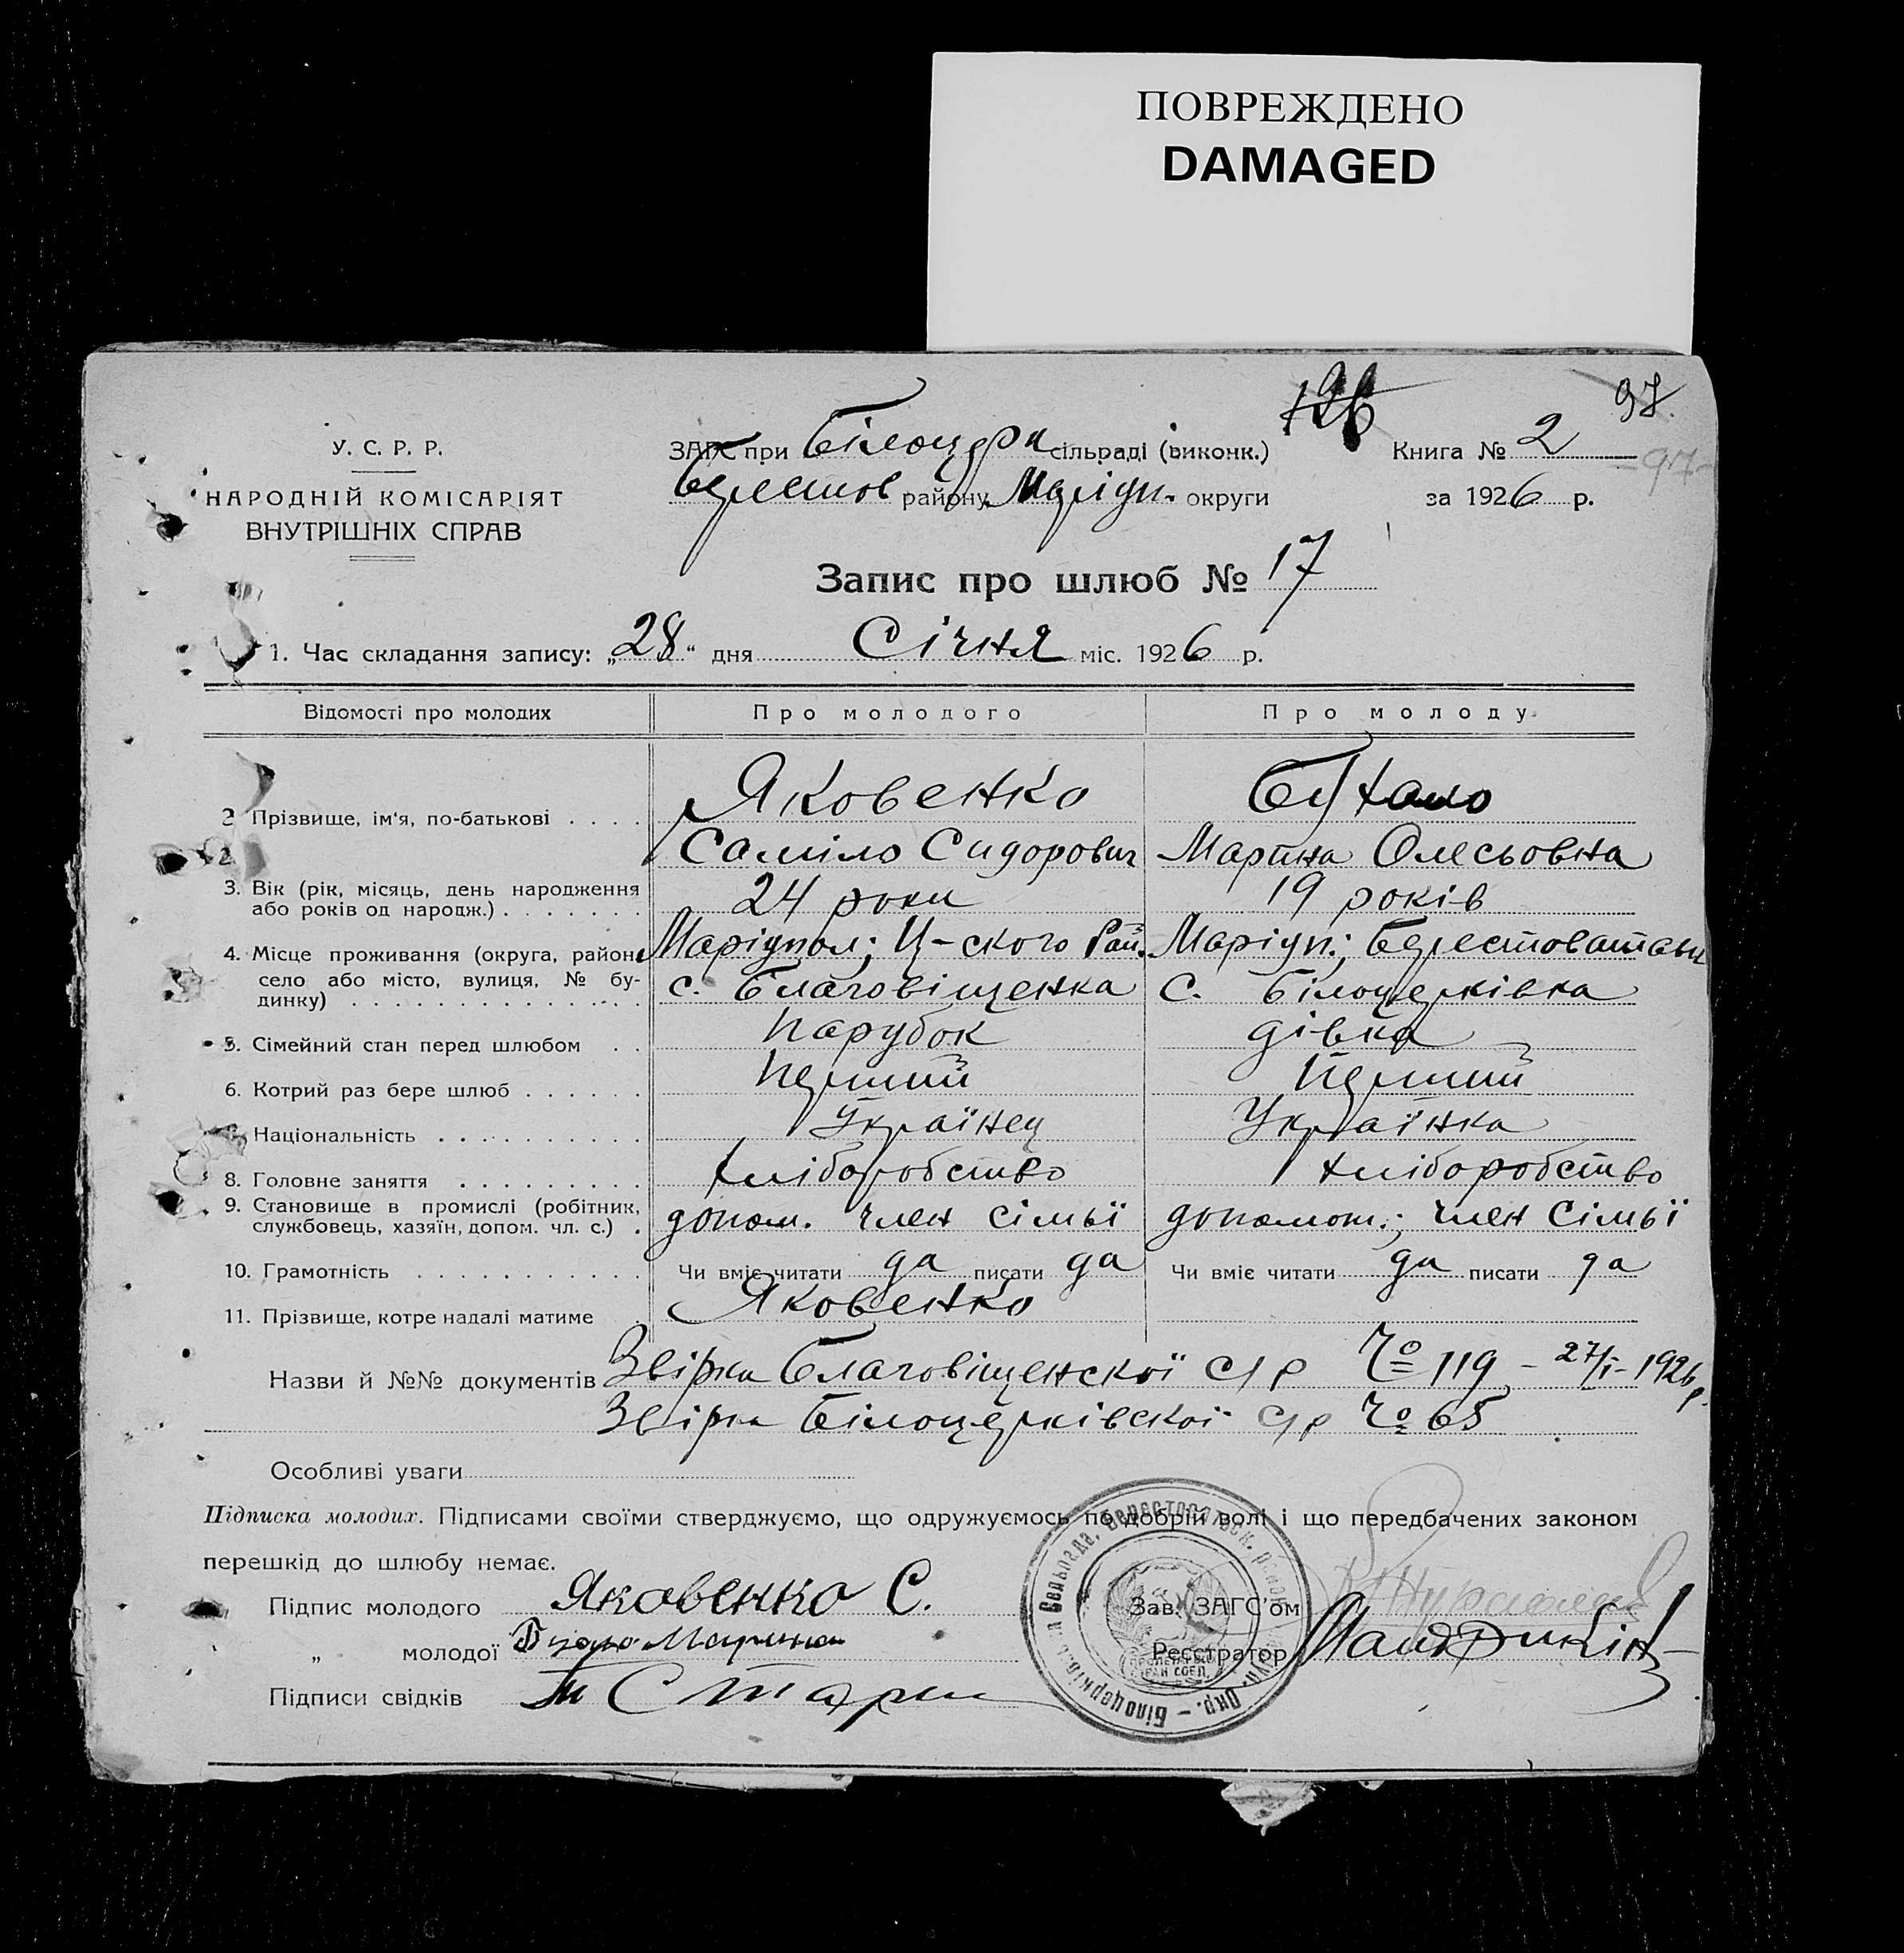 ПОВРЕЖДЕНО
DAMAGED
126
97.
У. С. Р. Р.
НАРОДНІЙ КОМІСАРІЯТ
ВНУТРІШНІХ СПРАВ
ЗАГС при Білоцерк сільраді (виконк.)
Книга № 2
-97-
Берестов району, Маріуп. округи
за 1926 р.
Запис про шлюб № 17
1. Час складання запису: „28“ дня Січня міс. 1926 р.
Відомості про молодих
Про молодого
Про молоду
2 Прізвище, ім'я, по-батькові
Яковенко
Саміло Сидорович
Марина Олесьовна
3. Вік (рік, місяць, день народження
або років од народж.)
24 роки
19 років
4. Місце проживання (округа, район,
село або місто, вулиця, № бу-
динку)
Маріупол; Ц-ского Рай.
с. Благовіщенка
Маріуп.;
с. Білоцерківка
5. Сімейний стан перед шлюбом
парубок
дівка
6. Котрий раз бере шлюб
Перший
Перший
Національність
Українец
Українка
8. Головне заняття
хліборобство
хліборобство
9. Становище в промислі (робітник,
службовець, хазяїн, допом. чл. с.)
допом. член сімьї
допомот.; член Сімьї
10. Грамотність
Чи вміє читати да писати да
Чи вміє читати да писати да
11. Прізвище, котре надалі матиме
Яковенко
Назви й №№ документів Звірка Благовіщенскої с/р Чо 119 - 27/I-1926 р.
Звірка Білоцерківскоі с/р Чо 65
Особливі уваги
Підписка молодих. Підписами своїми стверджуємо, що одружуємось по добрій волі і що передбачених законом
перешкід до шлюбу немає.
Підпис молодого Яковенко С.
„ молодої Марина
Підписи свідків
Зав. ЗАГС'ом
Реєстратор